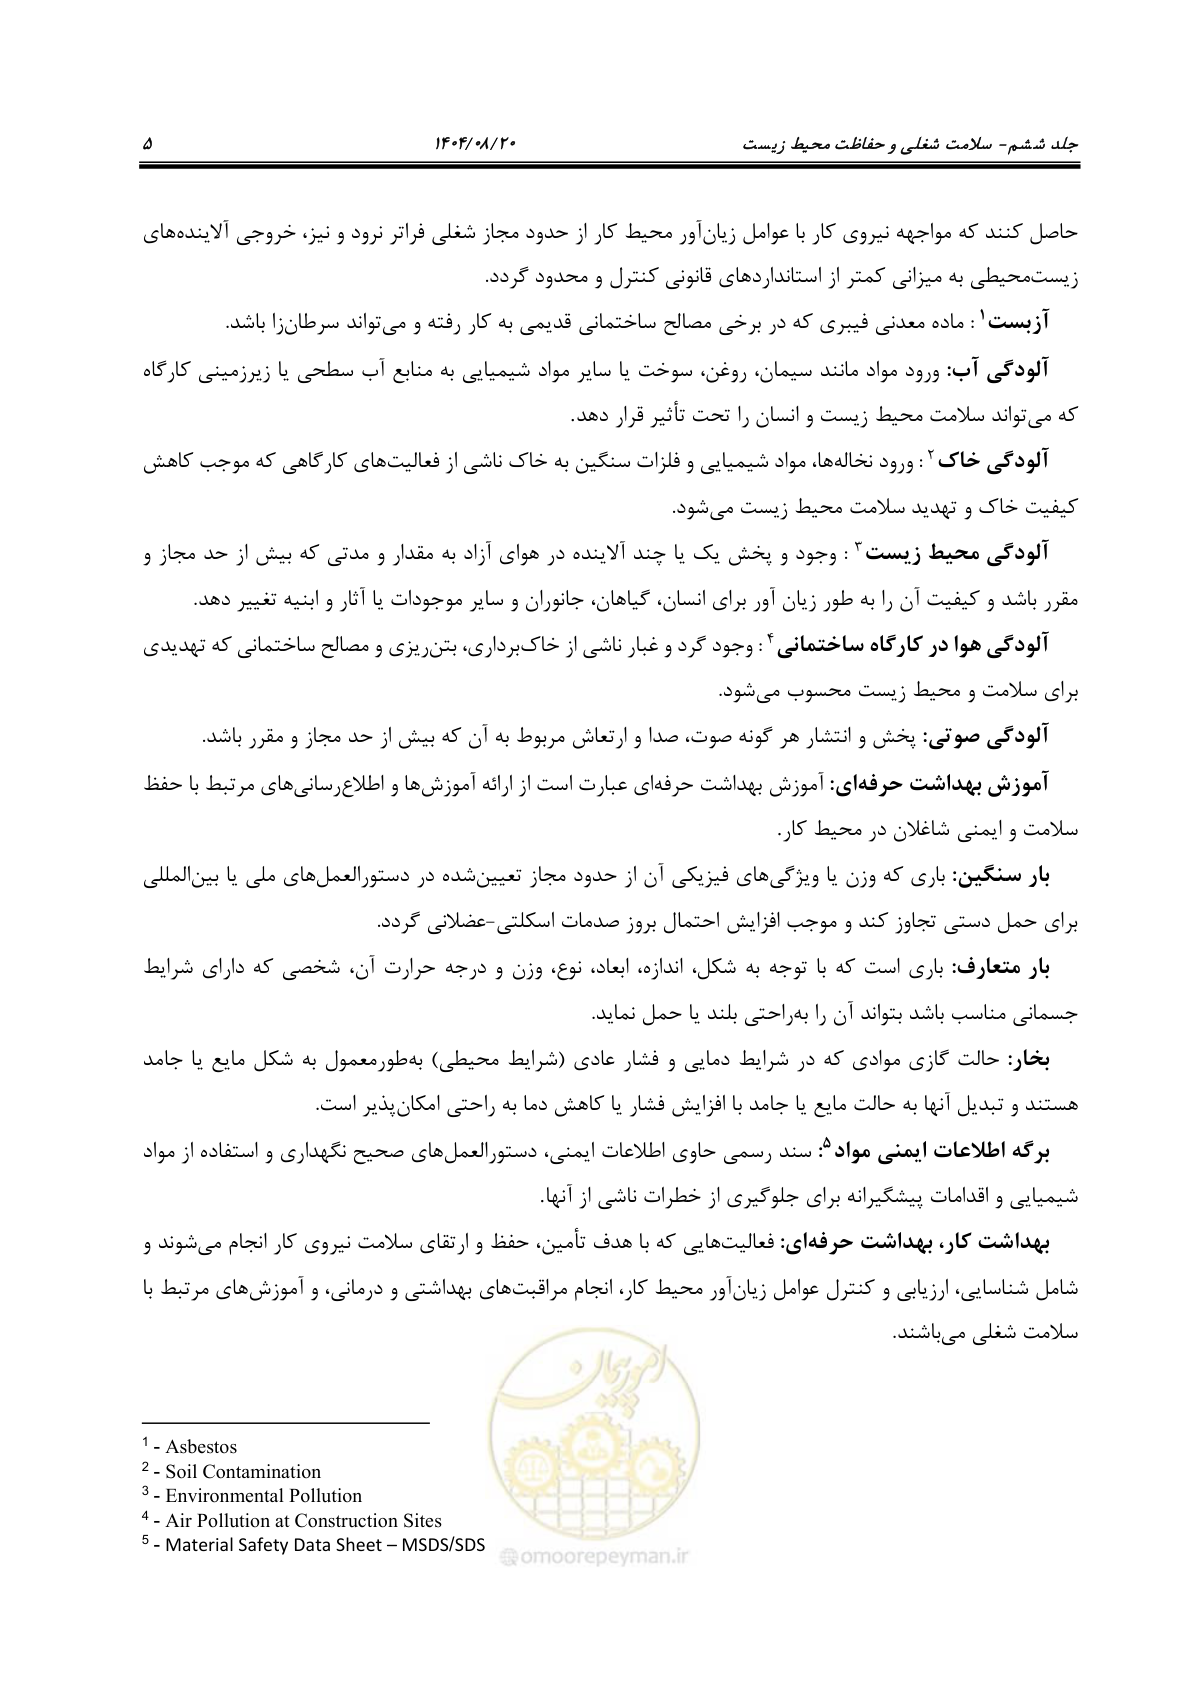 جلد ششم- سلامت شغلی و حفاظت محیط زیست ۱۴۰۴/۰۸/۲۰ ۵
حاصل کنند که مواجهه نیروی کار با عوامل زیان‌آور محیط کار از حدود مجاز شغلی فراتر نرود و نیز، خروجی آلاینده‌های
زیست‌محیطی به میزانی کمتر از استانداردهای قانونی کنترل و محدود گردد.
آزبست۱: ماده معدنی فیبری که در برخی مصالح ساختمانی قدیمی به کار رفته و می‌تواند سرطان‌زا باشد.
آلودگی آب: ورود مواد مانند سیمان، روغن، سوخت یا سایر مواد شیمیایی به منابع آب سطحی یا زیرزمینی کارگاه
که می‌تواند سلامت محیط زیست و انسان را تحت تأثیر قرار دهد.
آلودگی خاک۲: ورود نخاله‌ها، مواد شیمیایی و فلزات سنگین به خاک ناشی از فعالیت‌های کارگاهی که موجب کاهش
کیفیت خاک و تهدید سلامت محیط زیست می‌شود.
آلودگی محیط زیست۳: وجود و پخش یک یا چند آلاینده در هوای آزاد به مقدار و مدتی که بیش از حد مجاز و
مقرر باشد و کیفیت آن را به طور زیان آور برای انسان، گیاهان، جانوران و سایر موجودات یا آثار و ابنیه تغییر دهد.
آلودگی هوا در کارگاه ساختمانی۴: وجود گرد و غبار ناشی از خاک‌برداری، بتن‌ریزی و مصالح ساختمانی که تهدیدی
برای سلامت و محیط زیست محسوب می‌شود.
آلودگی صوتی: پخش و انتشار هر گونه صوت، صدا و ارتعاش مربوط به آن که بیش از حد مجاز و مقرر باشد.
آموزش بهداشت حرفه‌ای: آموزش بهداشت حرفه‌ای عبارت است از ارائه آموزش‌ها و اطلاع‌رسانی‌های مرتبط با حفظ
سلامت و ایمنی شاغلان در محیط کار.
بار سنگین: باری که وزن یا ویژگی‌های فیزیکی آن از حدود مجاز تعیین‌شده در دستورالعمل‌های ملی یا بین‌المللی
برای حمل دستی تجاوز کند و موجب افزایش احتمال بروز صدمات اسکلتی-عضلانی گردد.
بار متعارف: باری است که با توجه به شکل، اندازه، ابعاد، نوع، وزن و درجه حرارت آن، شخصی که دارای شرایط
جسمانی مناسب باشد بتواند آن را به‌راحتی بلند یا حمل نماید.
بخار: حالت گازی موادی که در شرایط دمایی و فشار عادی (شرایط محیطی) به‌طورمعمول به شکل مایع یا جامد
هستند و تبدیل آنها به حالت مایع یا جامد با افزایش فشار یا کاهش دما به راحتی امکان‌پذیر است.
برگه اطلاعات ایمنی مواد۵: سند رسمی حاوی اطلاعات ایمنی، دستورالعمل‌های صحیح نگهداری و استفاده از مواد
شیمیایی و اقدامات پیشگیرانه برای جلوگیری از خطرات ناشی از آنها.
بهداشت کار، بهداشت حرفه‌ای: فعالیت‌هایی که با هدف تأمین، حفظ و ارتقای سلامت نیروی کار انجام می‌شوند و
شامل شناسایی، ارزیابی و کنترل عوامل زیان‌آور محیط کار، انجام مراقبت‌های بهداشتی و درمانی، و آموزش‌های مرتبط با
سلامت شغلی می‌باشند.
امور پیمان
1 - Asbestos
2 - Soil Contamination
3 - Environmental Pollution
4 - Air Pollution at Construction Sites
5 - Material Safety Data Sheet – MSDS/SDS
@omoorepeyman.ir